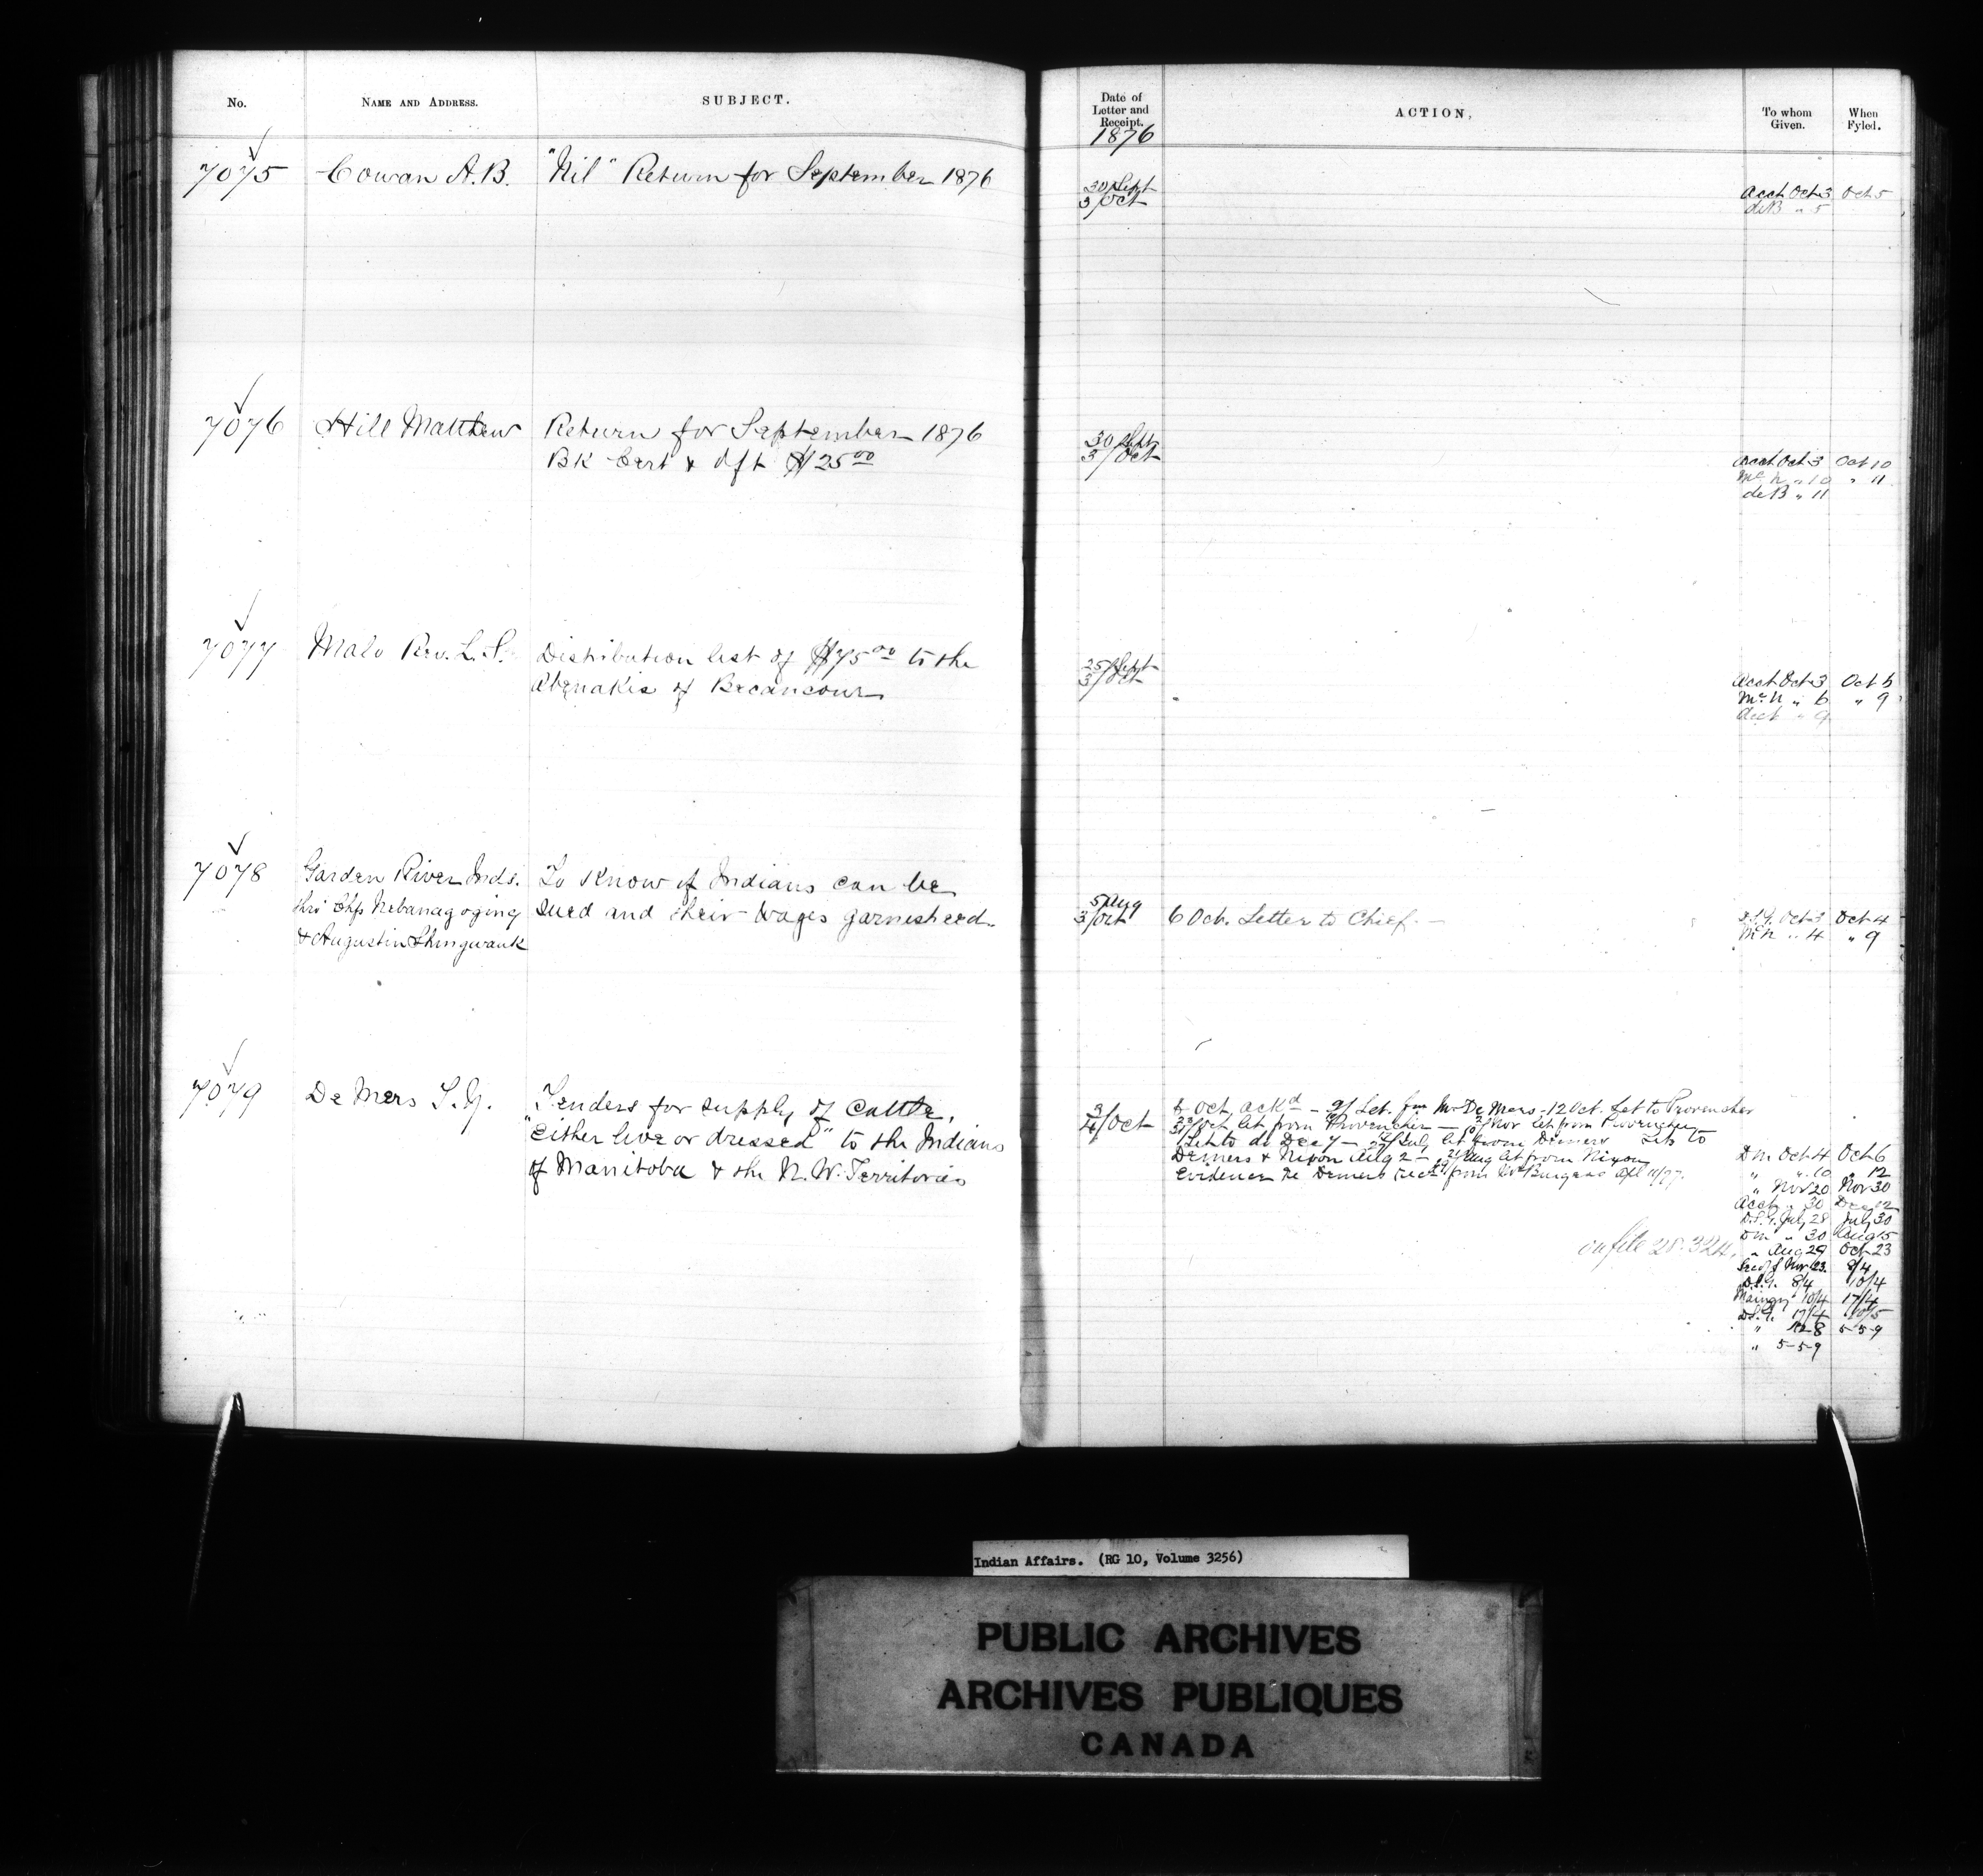 No. NAME AND ADDRESS. SUBJECT.
Date of Letter and Receipt. ACTION, To whom Given. When Fyled.
1876
7075 Cowan A.B. "Nil" Return for September 1876
30 Sept
3/Oct
Acct Oct 3 Oct 5
deB " 5
7076 Hill Matthew Return for September 1876
Bk Cert & dft $125.00
30 Sept
3/Oct
Acct Oct 3 Oct 10
McN " 10 " 11
deB " 11
7077 Malo Rev. L. S. Distribution list of $75.00 to the
Abenakis of Becancour
25 Sept
3/Oct
Acct Oct 3 Oct 6
McN " 6 " 9
Acct " 9
7078 Garden River Inds. To Know if Indians can be
thro' Chfs Nebanagoging sued and their wages garnisheed
& Augustin Shingwauk
5 Aug
3/Oct
6 Oct. Letter to Chief. —
Oct 3 Oct 4
McN " 4 " 9
7079 De Mers T. J. Tenders for supply of Cattle,
"either live or dressed" to the Indians
of Manitoba & the N. W. Territories
3
4/Oct
Oct, ackd — Let. fm Mr De Mers - 12 Oct. Let to Provencher
31/Oct let from Provencher — Nov let from Provencher
Let to do Dec 7 — July let from Demers Lets to
Demers & Nixon Aug 2 — Aug let from Nixon
Evidence re Demers recd from Burgess
on file 28.324.
Dm Oct 4 Oct 6
" " 10 " 12
" Nov 20 Nov 30
Acct " 30 Dec 12
D.S.G. July 28 July 30
Dm " 30 Aug 15
" Aug 29 Oct 23
Nov 23. 8/4
D.S.G. 8/4 10/4
Maingy 10/4 17/4
D.S.G. 17/4 10/5
" 5-5-9
" 5-5-9
Indian Affairs. (RG 10, Volume 3256)
PUBLIC ARCHIVES
ARCHIVES PUBLIQUES
CANADA